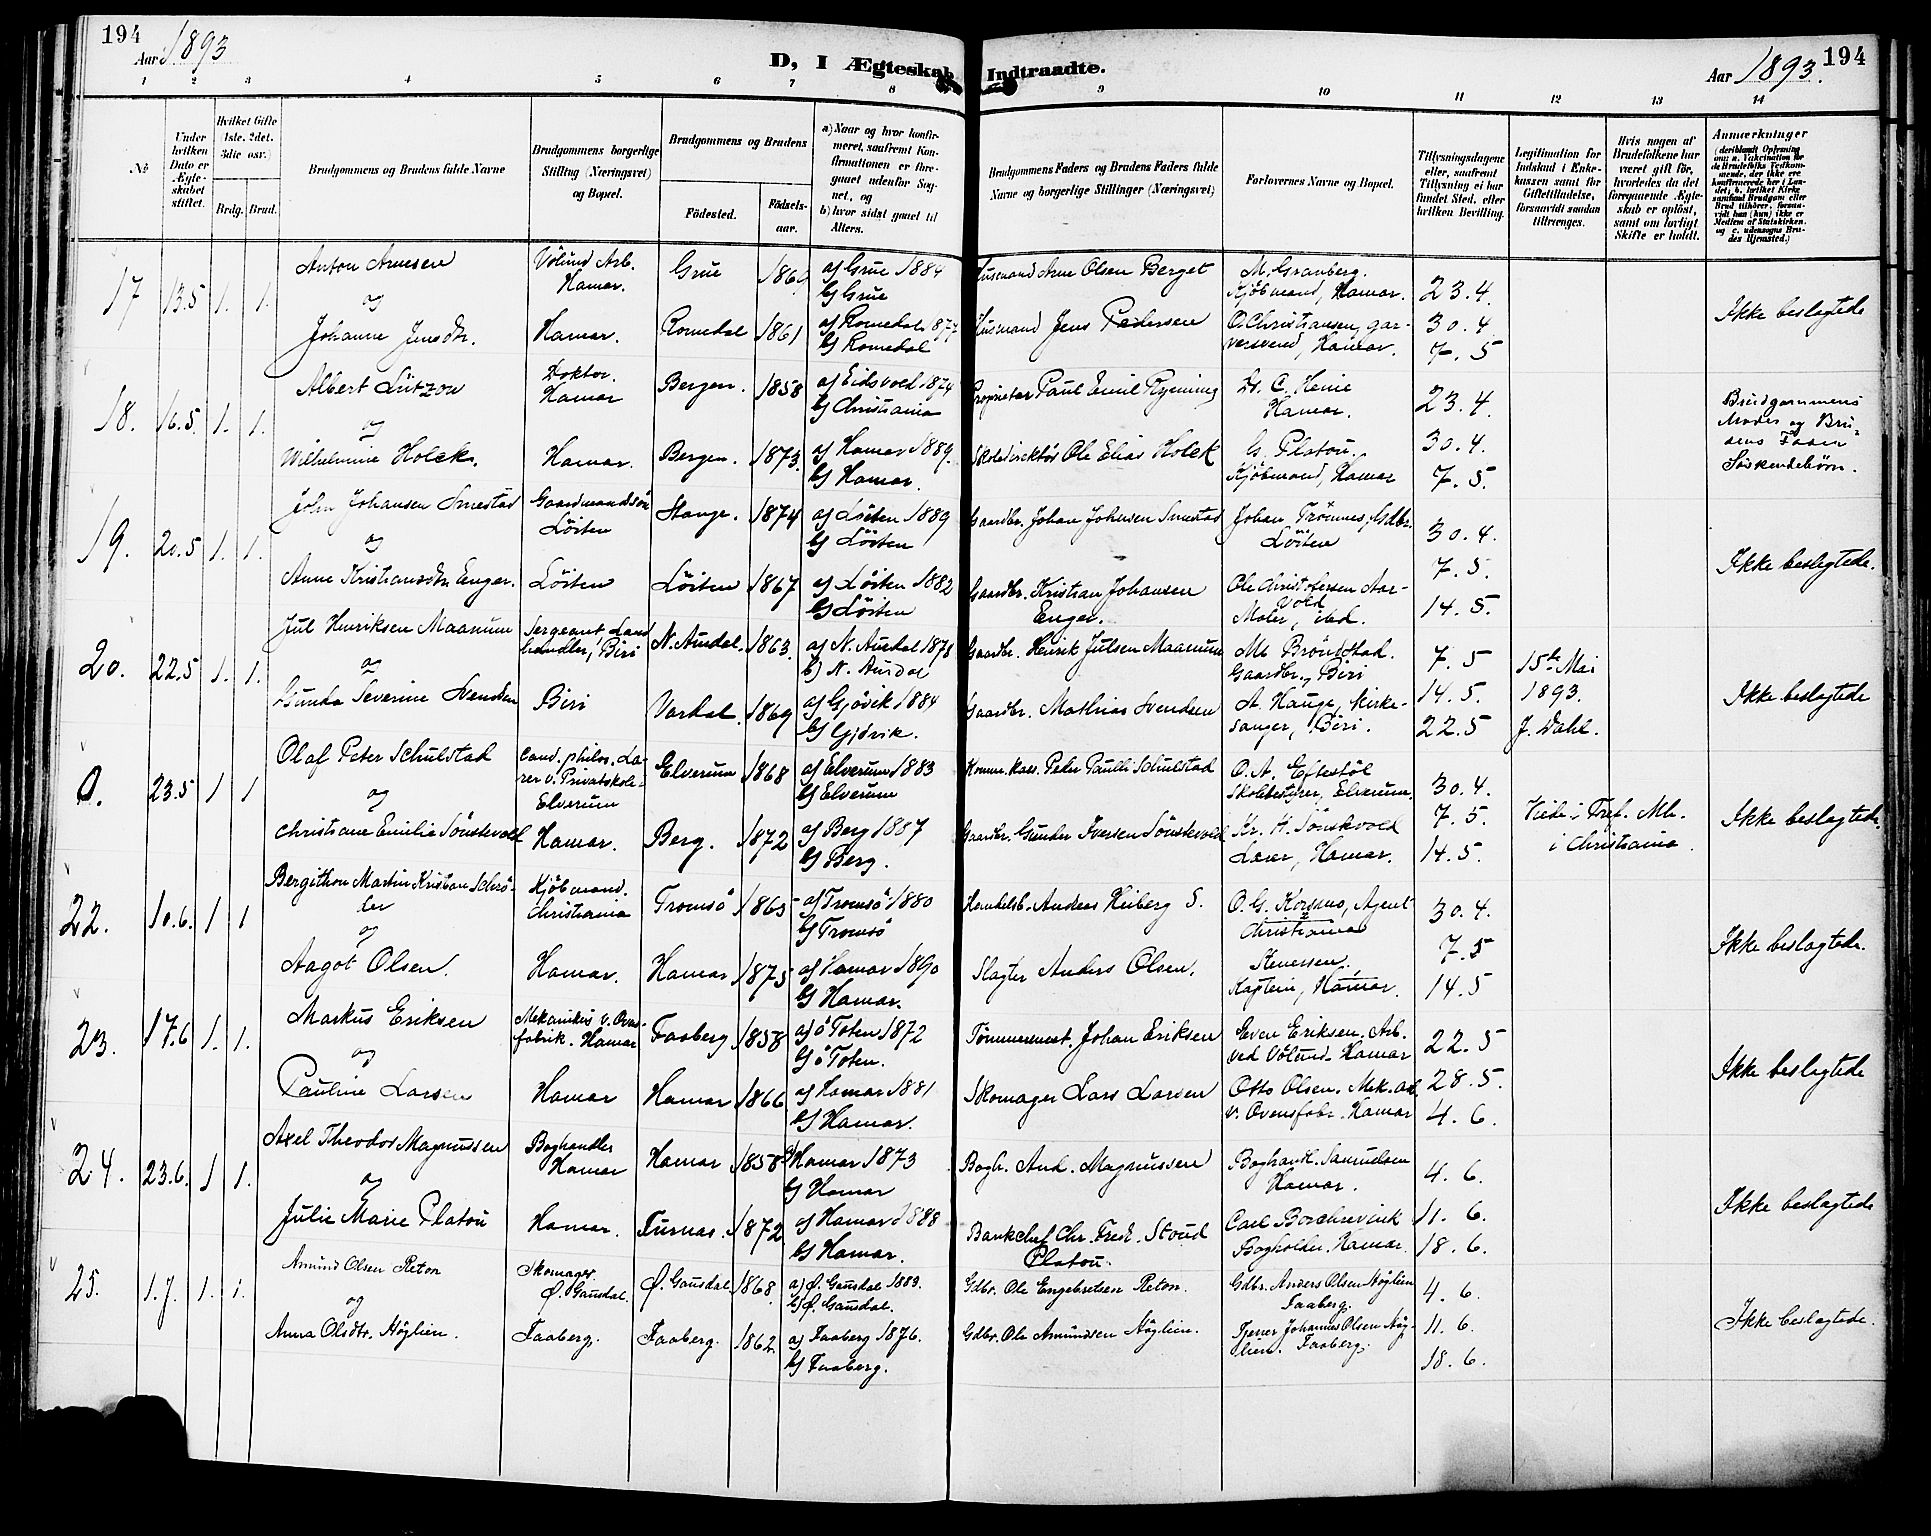 194
Aar 1893
D, I Ægteskab Indtraadte.
Aar 1893.
194
1 2 3 4 5 6 7 8 9 10 11 12 13 14
No
Under hvilken Dato er Ægteskabet stiftet.
Hvilket Gifte 1ste. 2det. 3die osv.)
Brdg. Brud.
Brudgommens og Brudens fulde Navne
Brudgommens borgerlige Stilling (Næringsvei) og Bopæl.
Brudgommens og Brudens
Fødested.
Fødselsaar.
a) Naar og hvor konfirmeret, saafremt Konfirmationen er foregaaet udenfor Sognet, og
b) hvor sidst gaaet til Alters.
Brudgommens Faders og Brudens Faders fulde Navne og borgerlige Stillinger (Næringsvei)
Forlovernes Navne og Bopæl.
Tillysningsdagene eller, saafremt Tillysning ei har fundet Sted, efter hvilken Bevilling.
Legitimation for Indskud i Enkekassen samt for Giftetilladelse, forsaavidt saadan tiltrænges.
Hvis nogen af Brudefolkene har været gift før, hvorledes da det foregaaende Ægteskab er opløst, samt om lovligt Skifte er holdt.
Anmærkninger
17 13.5 1. 1.
Anton Arnesen
og
Johanne Jensdtr.
Vølund Arb. Hamar.
Hamar.
Grue 186
Romedal 1861
a) Grue 1884
b) Grue
a) Romedal 1877
b) Romedal
Husmand Arne Olsen Berget
Husmand Jens Pedersen
M. Granberg. Kjøbmand, Hamar.
O. Christiansen, garversvend, Hamar.
23.4.
30.4
7.5
Ikke beslegtede
18. 16.5. 1. 1.
Albert Lützow
og
Wilhelmine Holck.
Doktor. Hamar
Hamar.
Bergen. 1858
Bergen. 1873.
a) Eidsvold 1874
b) Christiania
a) Hamar 1889.
b) Hamar.
Proprietær Paul Emil Rynning
Skoledirektør Ole Elias Holck
Dr. C. Heie Hamar.
G. Platou. Kjøbmand, Hamar
23.4.
30.4.
7.5.
Brudgommens Moder og Brudens Fader Søskendebørn.
19. 20.5 1. 1.
John Johansen Smestad
og
Anne Kristiansdtr. Enger.
Gaardmandssøn Løiten
Løiten
Stange. 1874
Løiten 1867
a) Løiten 1889
b) Løiten
a) Løiten 1882
b) Løiten
Gaardbr. Johan Johnsen Smestad
Gaardbr. Kristian Johansen Enger.
Johan Trømnes, Gdbr. Løiten
Ole Christofersen Aarvold Maler, ibd.
30.4.
7.5.
14.5.
Ikke beslegtede.
20. 22.5 1. 1.
Jul Henriksen Maanum
og
Gunda Severine Svendsen
Sergeant, Landhandler, Biri
Biri
N. Aurdal. 1863.
Vardal. 1869
a) N. Aurdal 1878
b) N. Aurdal
a) Gjøvik 1884
b) Gjøvik.
Gaardbr. Henrik Julsen Maanum
Gaardbr. Mathias Svendsen
Gaardbr., Biri
A. Hauge, Kirkesanger, Biri.
7.5
14.5.
22.5
15de Mai 1893. J. Dahl.
Ikke beslegtede
0. 23.5 1 1
Olaf Peter Schulstad
og
Christiane Emilie Sønskvold
Cand. philos. Lærer v. Privatskole Elverum
Hamar.
Elverum 1868
Berg. 1872
a) Elverum 1883
b) Elverum
a) Berg 1887
b) Berg.
Komm. kass. Peter Paulli Schulstad
Gaardbr. Gunder Iversen Sønskvold
O. A. Eftestøl Skolebestyrer, Elverum.
Kr. H. Sønskvold Lærer, Hamar.
30.4.
7.5.
14.5.
Viede i Tref. Me. i Christiania.
Ikke beslegtede.
22. 10.6. 1 1
Bergithon Martin Kristian Schrøder
og
Aagot Olsen.
Kjøbmand. Christiania
Hamar.
Tromsø 1865
Hamar 1875
a) Tromsø 1880
b) Tromsø
a) Hamar 1890
b) Hamar.
Handelsb. Andreas Heiberg S.
Slagter Anders Olsen.
O. G. Korsmo, Agent Christiania
Kenersen. Kaptein, Hamar.
30.4.
7.5
14.5
Ikke beslegtede.
23. 17.6 1. 1.
Markus Eriksen
og
Pauline Larsen
Mekanikus v. Ovnsfabrik. Hamar
Hamar
Faaberg 1858
Hamar 1866
a) ø Toten 1872
b) ø Toten.
a) Hamar 1881
b) Hamar.
Tømmermest. Johan Eriksen
Skomager Lars Larsen
Even Eriksen. Arb. ved Vølund. Hamar
Otto Olsen. Mek. arb. v. Ovensfabr. Hamar
22.5
28.5.
4.6.
Ikke beslegtede
24. 23.6. 1 1.
Axel Theodor Magnussen
og
Julie Marie Platou
Boghandler Hamar
Hamar.
Hamar 1858
Furnæs. 1872
a) Hamar 1873
b) Hamar
a) Hamar 1888
b) Hamar.
Bogh. And. Magnussen
Bankchef Chr. Fred. Stoud Platou.
Boghandl. Samuelsen Hamar.
Carl Borchrevink Bogholder. Hamar.
4.6.
11.6.
18.6.
Ikke beslegtede
25. 1.7. 1. 1.
Amund Olsen Reton
og
Anna Olsdtr. Høglien.
Skomager. Ø. Gausdal.
Faaberg.
Ø. Gausdal 1868.
Faaberg. 1862
a) Ø. Gausdal 1883.
b) Ø. Gausdal.
a) Faaberg 1876.
b) Faaberg.
Gdbr. Ole Engebretsen Reton.
Gdbr. Ole Amundsen Høglien.
Gdbr. Anders Olsen Høglien Faaberg.
Tjener Johannes Olsen Høglien. Faaberg.
4.6.
11.6.
18.6.
Ikke beslegtede.